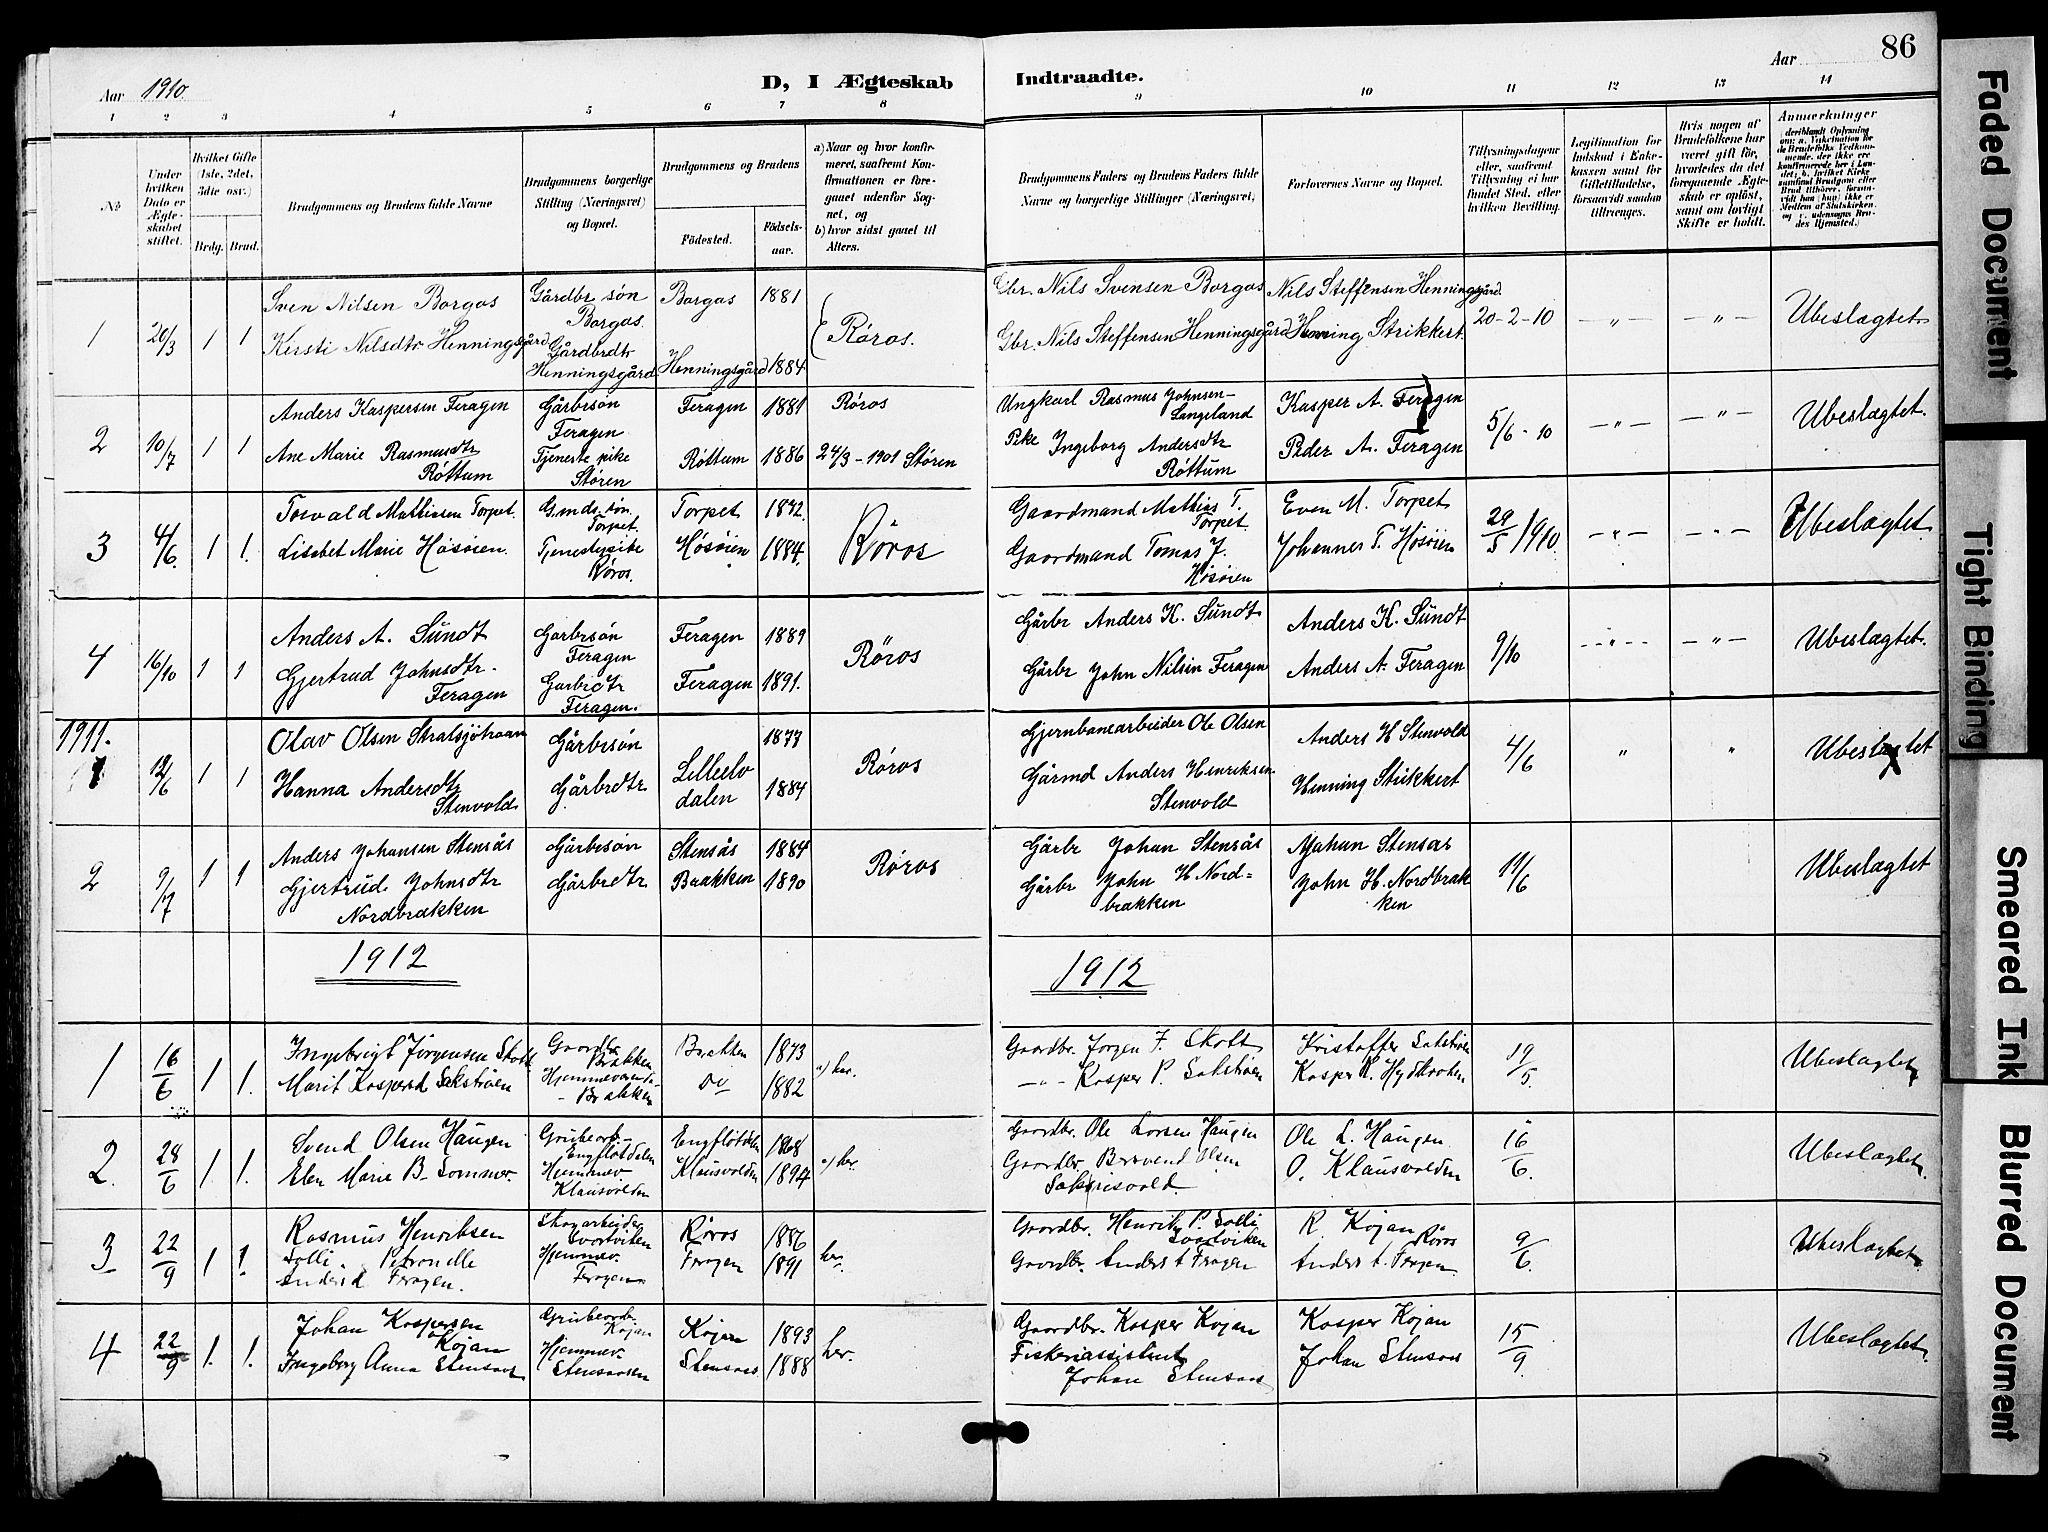 86
Aar 1910.
D, I Ægteskab
Indtraadte.
Aar
1 2 3 4 5 6 7 8
9 10 11 12 13 14
Nb
Under hvilken Dato er Ægteskabet stiftet.
Hvilket Gifte (1ste, 2det, 3die osv.)
Brdg. Brud.
Brudgommens og Brudens fulde Navne
Brudgommens borgerlige Stilling (Næringsvei) og Bopæl.
Brudgommens og Brudens
Fødested.
Fødsels-aar.
a) Naar og hvor konfirmeret, saafremt Konfirmationen er foregaaet udenfor Sognet, og
b) hvor sidst gaaet til Alters.
Brudgommens Faders og Brudens Faders fulde Navne og borgerlige Stillinger (Næringsvei,
Forlovernes Navne og Bopæl.
Tillysningsdagene eller, saafremt Tillysning ei har fundet Sted, efter hvilken Bevilling.
Legitimation for Indskud i Enkekassen samt for Giftetilladelse, forsaavidt saadan tiltrænges.
Hvis nogen af Brudefolkene har været gift før, hvorledes da det foregaaende Ægteskab er opløst, samt om lovligt Skifte er holdt.
Anmerkninger
1 20/3 1 1
Sven Nilsen Borgos
Kirsti Nilsdtr Henningsgård
Gårdbr søn
Borgos.
Gårdbrdtr
Henningsgård
Borgos 1881
Henningsgård 1884
Røros.
Gbr. Nils Svensen Borgos
Gbr. Nils Steffensen Henningsgård
Nils Steffensen Henningsgård.
Henning Strikkert.
20-2-10
-„- -„-
Ubeslægtet.
2 10/7 1 1
Anders Kaspersen Feragen
Ane Marie Rasmusdtr
Röttum
Gårbrsön
Feragen
Tjeneste pike
Støren
Feragen 1881
Röttum 1886
Röros
24/3-1901 Stören
Ungkarl Rasmus Johnsen-
Langeland
Pike Ingeborg Andersdtr
Röttum
Kasper A. Feragen
Peder A. Feragen
5/6-10
-„- -„-
Ubeslægtet.
3 4/6. 1 1.
Torvald Mathiesen Torpet.
Lisabet Marie Høsøien.
G.mds. søn.
Torpet.
Tjenestepike
Røros.
Torpet 1872.
Høsøien 1884.
Røros
Gaardmand Mathias T.
Torpet
Gaardmand Tomas J.
Høsøien
Even M. Torpet
Johannes T. Høsøien
29/5 1910.
-„- -„-
Ubeslægtet.
4 16/10 1 1
Anders A. Sündt
Gjertrud Johnsdtr.
Feragen
Garbrsön
Feragen
Garbrdtr
Feragen.
Feragen 1889
Feragen 1891.
Röros
Gårbr Anders K. Sündt
Gårbr John Nilsen Feragen
Anders K. Sündt
Anders A. Feragen
9/10
-„- -„-
Ubeslægtet.
1911.
1 12/6 1 1
Olav Olsen
Hanna Andersdtr
Stenvold
Gårbrsön
Gårbrdtr
Lilleelv
dalen
1877
1884
Röros
Gjernbanearbeider Ole Olsen
Gårmd Anders Henriksen
Stenvold
Anders H Stenvold
Henning Strikkert
4/6
„ „
Ubeslægtet
2 9/7 1 1
Anders Johansen Stensås
Gjertrud Johnsdtr
Nordbrækken
Gårbrsön
Gårbrdtr
Stensås 1884
Brækken 1890
Röros
Gårbr Johan Stensås
Gårbr John H Nord=
brækken
Johan Stensås
John H. Nordbræk
ken
11/6
Ubeslægtet
1912
1912
1 16/6 1 1.
Ingebrigt Jörgensen Skott
Marit Kaspersd Sakstrøen
Gaardbr.
Brækken
Hjemmeværende
- Brækken
Brækken 1873
do 1882
a) her.
Gaardbr. Jørgen F. Skott
-„- Kasper P. Sakstrøen
Kristoffer Sakstrøen
Kasper K. Hydkroken
19/5.
Ubeslægtet
2. 28/6 1 1.
Svend Olsen Haugen
Elen Marie B. Sommer.
Grubearb.
Engfløtdalen
Hjemmev.
Klausvolden
Engfløtdalen 1868
Klausvolden 1894
a) her.
Gaardbr. Ole Larsen Haugen
Gaardbr. Berevend Olsen
Sakrisvold.
Ole L. Haugen.
O. Klausvolden
16/6.
Ubeslægtet.
3 22/9 1 1.
Rasmus Henriksen
Solli. Petronelle
Andersd Feragen.
Skogarbeider
Hjemmev.
Feragen
Røros 1886
Feragen 1891
her.
Gaardbr. Henrik P. Solli
Gaardbr. Anders A Feragen
R. Kojan
Røros
Anders A. Feragen
9/6.
Ubeslægtet.
4 22/9 1. 1.
Johan Kaspersen
Kojan
Ingeborg Anna Stensaas
Grubearb.
Kojan
Hjemmev.
Stensaasen
Kojan 1893
Stensaas 1888
her.
Gaardbr. Kasper Kojan
Fiskeriassistent
Johan Stensaas
Kasper Kojan
Johan Stensaas
15/9.
Ubeslægtet.
Faded Document
Tight Binding
Smeared Ink
Blurred Document